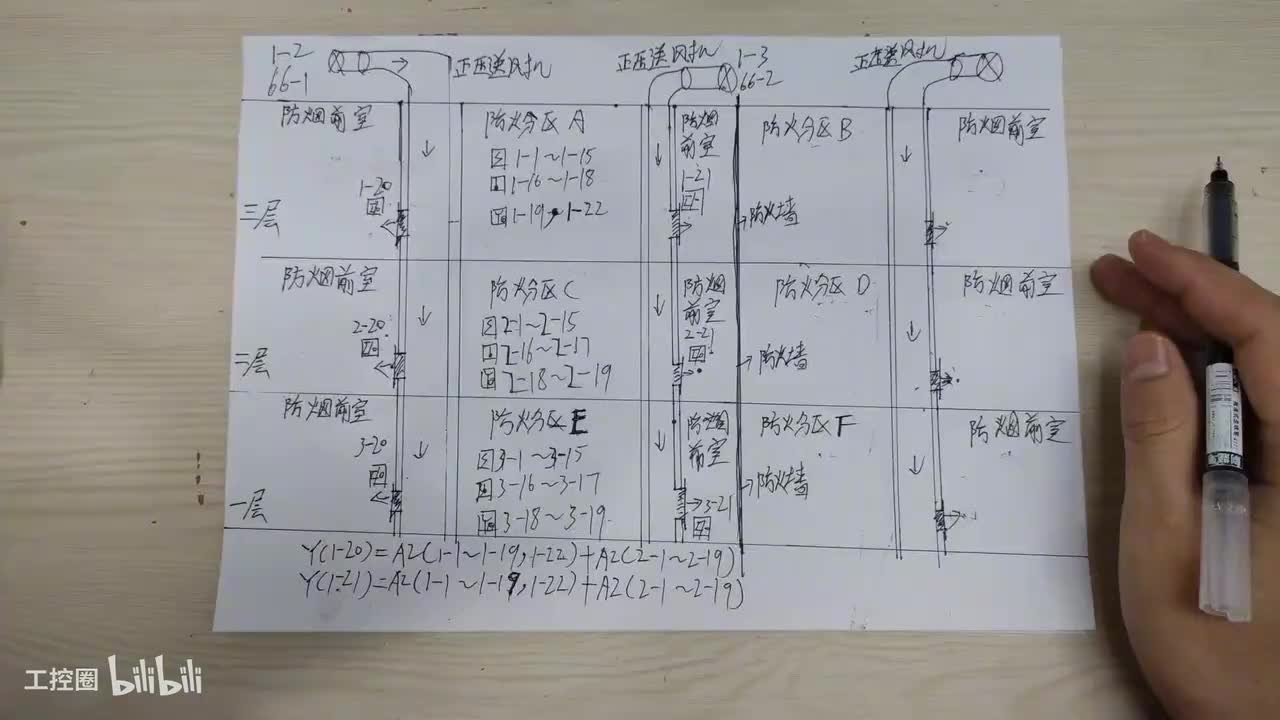 1-2
66-1
正压送风机
正压送风机
1-3
66-2
正压送风机
防烟前室
防火分区 A
防烟
前室
防火分区 B
防烟前室
1-1~1-15
1-16~1-18
1-19,1-22
1-20
1-21
三层
防火墙
防烟前室
防火分区 C
防烟
前室
防火分区 D
防烟前室
2-1~2-15
2-16~2-17
2-18~2-19
2-20
2-21
二层
防火墙
防烟前室
防火分区 E
防烟
前室
防火分区 F
防烟前室
3-1~3-15
3-16~3-17
3-18~3-19
3-20
3-21
一层
防火墙
Y(1-20)=A2(1-1~1-19,1-22)+A2(2-1~2-19)
Y(1-21)=A2(1-1~1-19,1-22)+A2(2-1~2-19)
工控圈 bilibili